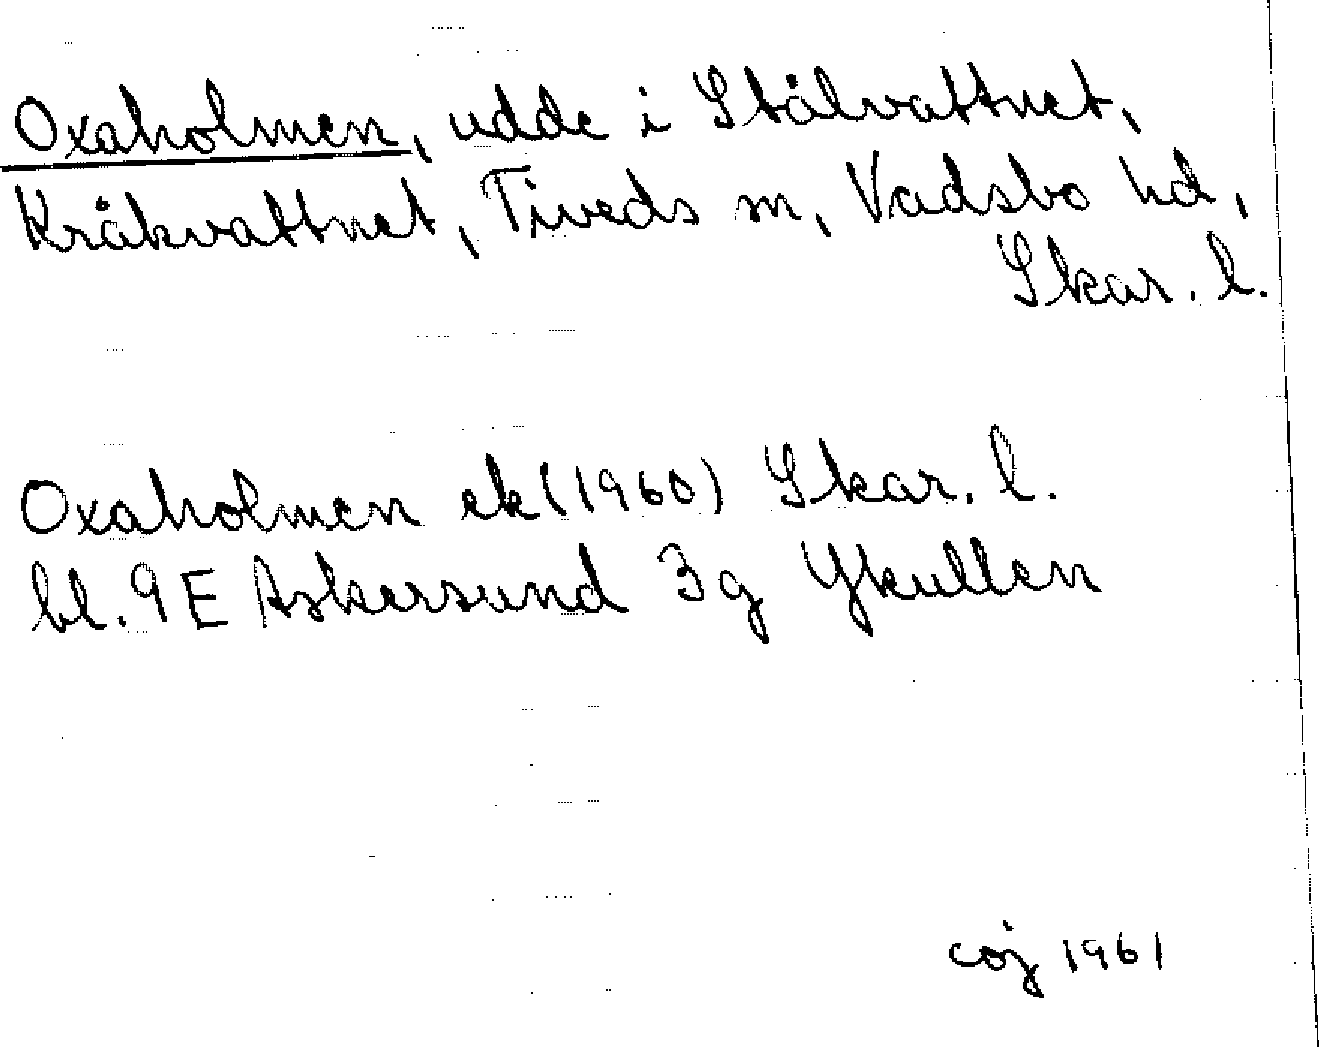 Oxaholmen, udde i Stålvattnet,
Kråkvattnet, Tiveds sn, Vadsbo hd,
Skar. l.
Oxaholmen ek (1960) Skar. l.
bl. 9E Askersund 3g Ykullen
coj 1961